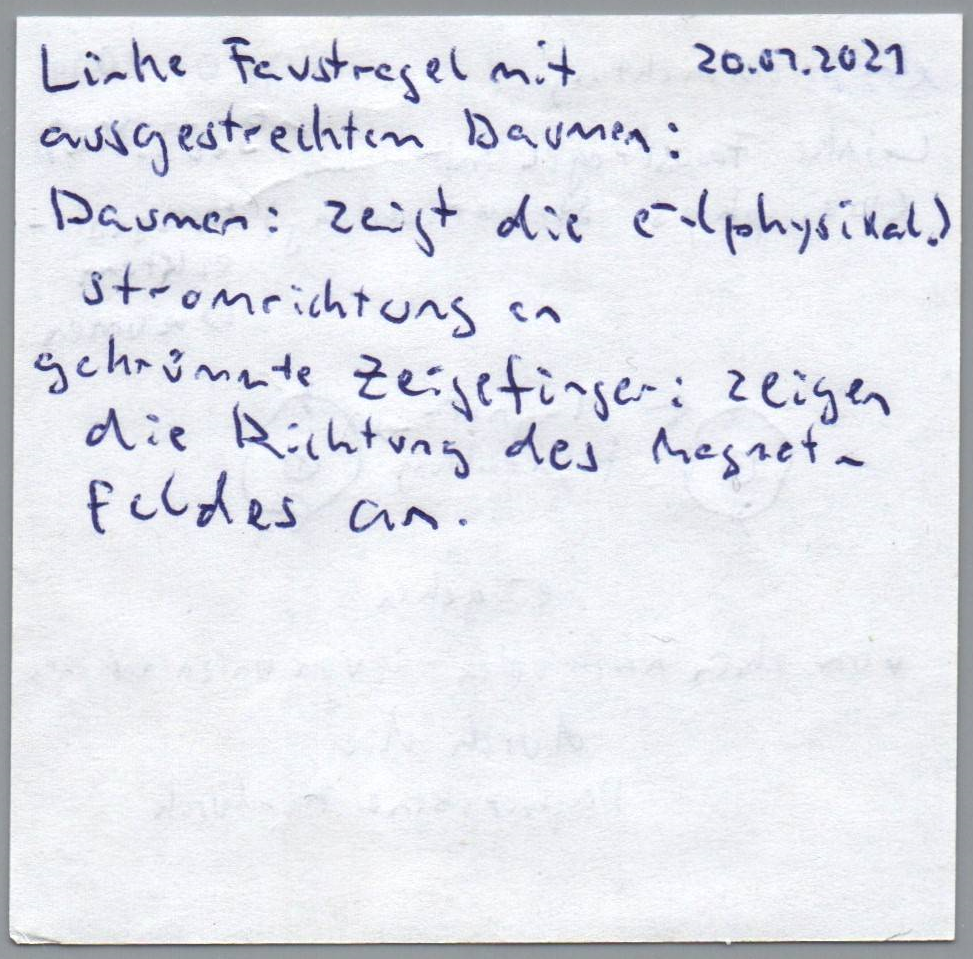 Linke Faustregel mit 20.01.2021
ausgestreckten Daumen:
Daumen: zeigt die e⁻(physikal.)
stromrichtung an
gekrümmte Zeigefinger: zeigen
die Richtung des Magnet-
feldes an.